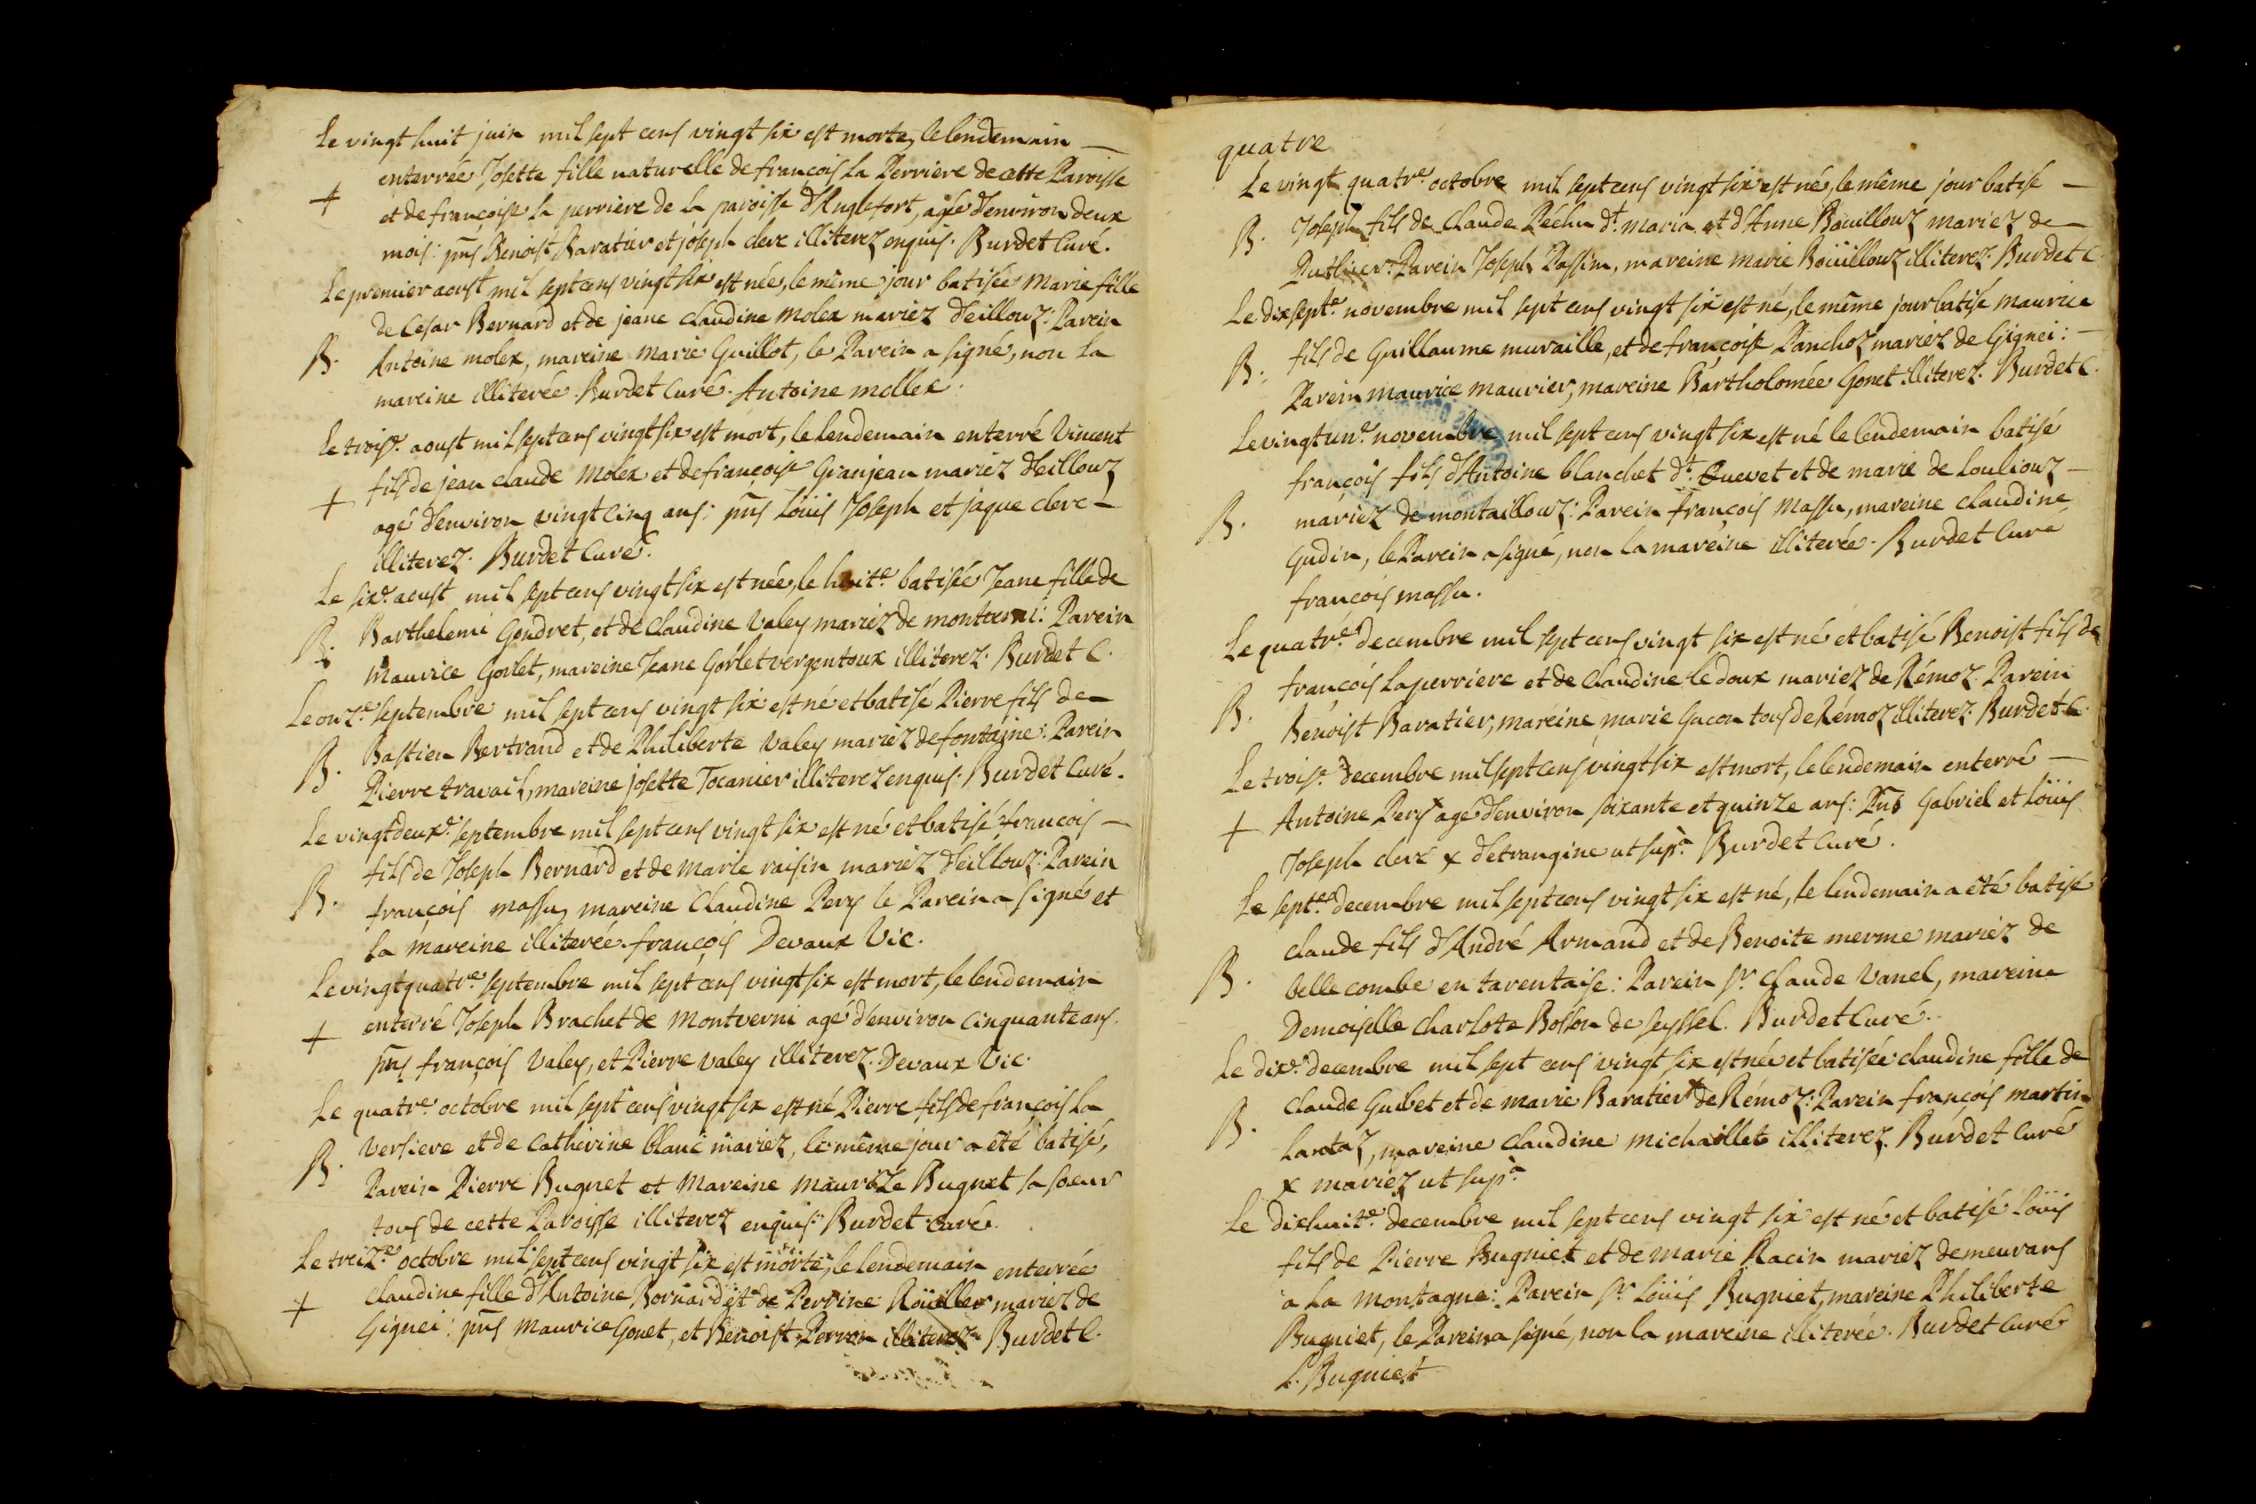 Le vingt huit juin mil sept cens vingt six est morte, le lendemain —
+ enterrée Josette fille naturelle de françois La Perriere de cette Paroisse
et de françoise la perriere de la paroisse d'Anglefort, agée d'environ deux
mois: pns Benoist Baratier et joseph clerc illiterez enquis. Burdet Curé.
Le premier aoust mil sept cens vingt six est née, le même jour batisée Marie fille
de Cesar Bernard et de jeane claudine Molex mariez d'eillouz: Parein
B. Antoine molex, mareine Marie Guillot, le Parein a signé, non la
mareine illiterée. Burdet Curé. Antoine mollex.
Le trois.e aoust mil sept cens vingt six est mort, le lendemain enterré Vincent
+ fils de jean claude Molex et de françoise Granjean mariez d'eillouz
agé d'environ vingt cinq ans: pns Löuis Joseph et jaque clerc —
illiterez. Burdet Curé.
Le six.e aoust mil sept cens vingt six est née, le huit.e batisée Jeane fille de
B. Barthelemi Goudret, et de Claudine Valey mariez de : Parein
Maurice Gorlet, mareine Jeane Gorlet vergentoux illiterez. Burdet C.
Le onz.e septembre mil sept cens vingt six est né et batisé Pierre fils de —
B. Bastien Bertrand et de Philiberte Valey mariez de fontaine: Parein
Pierre travail, mareine josette Tocanier illiterez enquis. Burdet Curé.
Le vingtdeux.e septembre mil sept cens vingt six est né et batisé françois —
fils de Joseph Bernard et de Marie raisin mariez d'eillouz: Parein
B. françois massu, mareine Claudine Perz le Parein a signé et
la mareine illiterée. françois Devaux Vic.
Le vingtquatr.e septembre mil sept cens vingt six est mort, le lendemain
+ enterré Joseph Brachet de Montverni agé d'environ cinquante ans.
pns françois Valey, et Pierre Valey illiterez. Devaux Vic.
Le quatr.e octobre mil sept cens vingt six est né Pierre fils de françois La
B. Versiere et de Catherine blanc mariez, le même jour a été batisé,
Parein Pierre Bugnet et Mareine Maurize Bugnet sa soeur
tous de cette Paroisse illiterez enquis. Burdet Curé.
Le treiz.e octobre mil sept cens vingt six est morte, le lendemain enterrée
+ Claudine fille d'Antoine Bornard et de Perrine mariez de
Gignei: pns Maurice Gonet, et Benoist Perron illiterez. Burdet C.
quatre
Le vingt quatr.e octobre mil sept cens vingt six est né, le même jour batisé —
B. Joseph fils de Claude Péchu dt. maria et d'Anne Bouillouz mariez de —
Parein Joseph Passin, mareine Marie Boüillouz illiterez. Burdet C.
Le dix sept.e novembre mil sept cens vingt six est né, le même jour batisé Maurice
B. fils de Guillaume muraille, et de françoise Panchoz mariez de Gignei: —
Parein Maurice Maurier, mareine Bartholomée Gonet illiterez. Burdet C.
Le vingt un.e novembre mil sept cens vingt six est né le lendemain batisé
françois fils d'Antoine blanchet dt. et de marie de Louliouz —
B. mariez de montaillouz: Parein françois Massu, mareine claudine
Gudin, le Parein a signé, non la mareine illiterée. Burdet Curé
françois massu.
Le quatr.e decembre mil sept cens vingt six est né et batisé Benoist fils de
françois Laperriere et de Claudine le doux mariez de Rémoz. Parein
B. Benoist Baratier, mareine marie Gacon tous de Rémoz illiterez. Burdet C.
Le trois.e decembre mil sept cens vingt six est mort, le lendemain enterré —
+ Antoine Perz x agé d'environ soixante et quinze ans: Pns Gabriel et Löuis
Joseph clerc x d'etrangine ut supr.a Burdet Curé.
Le sept.e decembre mil sept cens vingt six est né, le lendemain a été batisé
claude fils d'André Armand et de Benoite merme mariez de
B. belle combe en tarentaise: Parein Sr. Claude Vanel, mareine
Demoiselle Charlote Bosson de seyssel. Burdet Curé.
Le dix.e decembre mil sept cens vingt six est née et batisée claudine fille de
Claude Guibet et de Marie Baratier x de Rémoz: Parein françois martin
B. Lantaz, mareine claudine michaillet illiterez. Burdet Curé
x mariez ut supr.a
Le dixhuit.e decembre mil sept cens vingt six est né et batisé Löuis
fils de Pierre Bugniet et de Marie Racin mariez demeurans
à la montagne: Parein Sr. Löuis Bugniet, mareine Philiberte
Bugniet, le Parein a signé, non la mareine illiterée. Burdet Curé
L. Bugniet